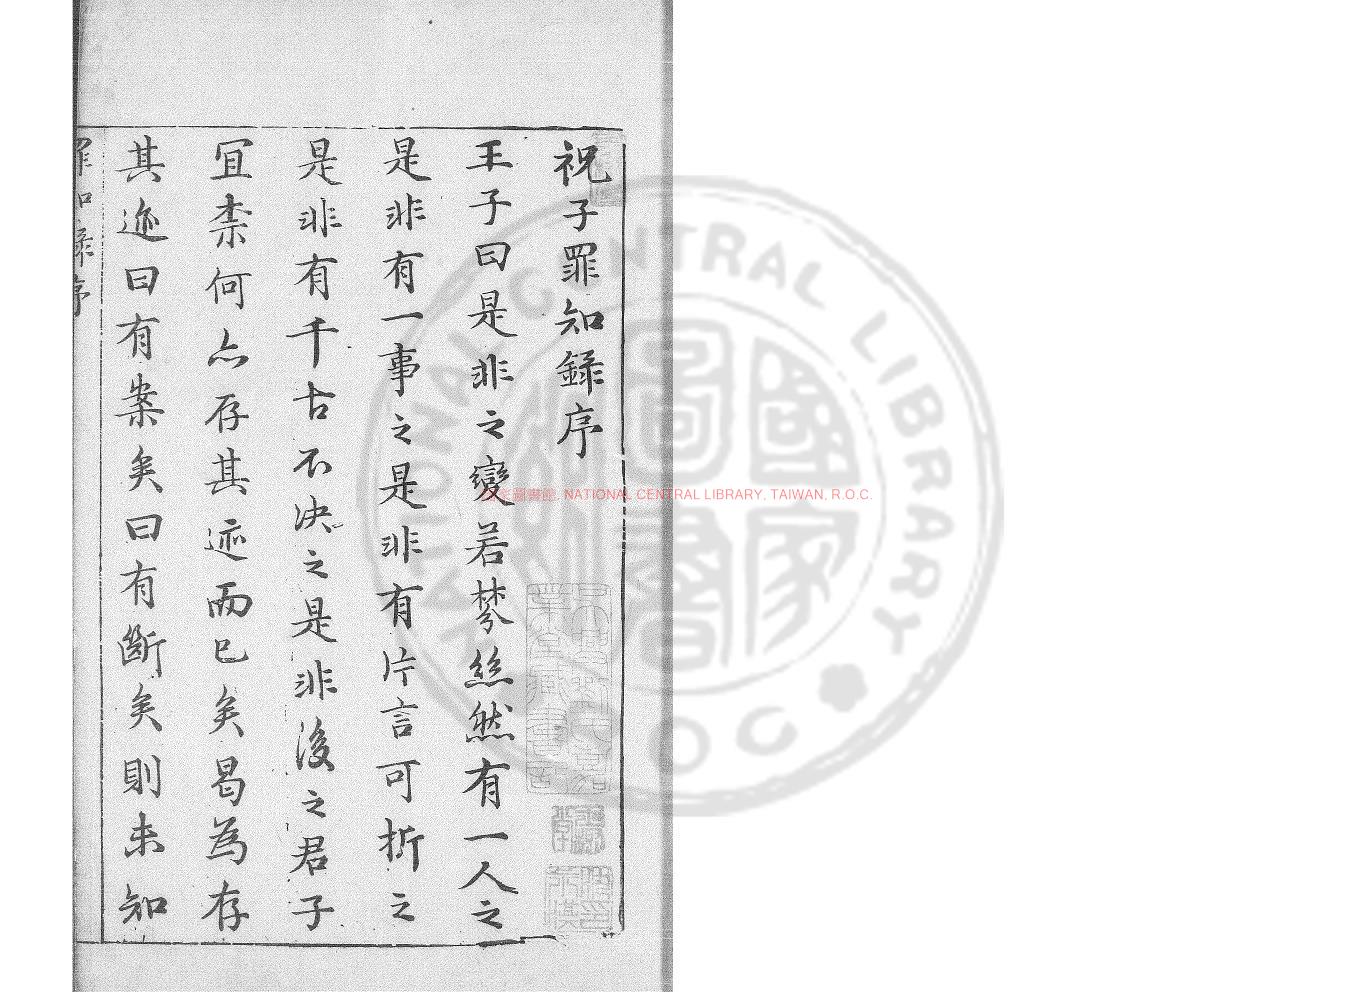 祝子罪知錄序
王子曰是非之變若棼絲然有一人之
是非有一事之是非有片言可折之
是非有千古不決之是非後之君子
宜柰何亦存其迹而已矣曷為存
其迹曰有案矣曰有斷矣則未知
罪知錄序
國家圖書館. NATIONAL CENTRAL LIBRARY, TAIWAN, R.O.C.
NATIONAL CENTRAL LIBRARY R.O.C.
國家圖書